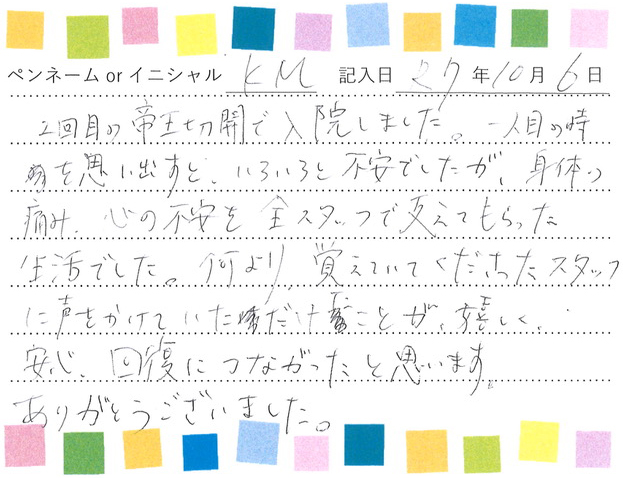 ペンネーム or イニシャル KM 記入日 27年10月6日
2回目の帝王切開で入院しました。一人目の時
を思い出すと、いろいろと不安でしたが、身体の
痛み、心の不安を全スタッフで支えてもらった
生活でした。何より、覚えていてくださったスタッフ
に声をかけていただけたことが、嬉しく、
安心、回復につながったと思います。
ありがとうございました。